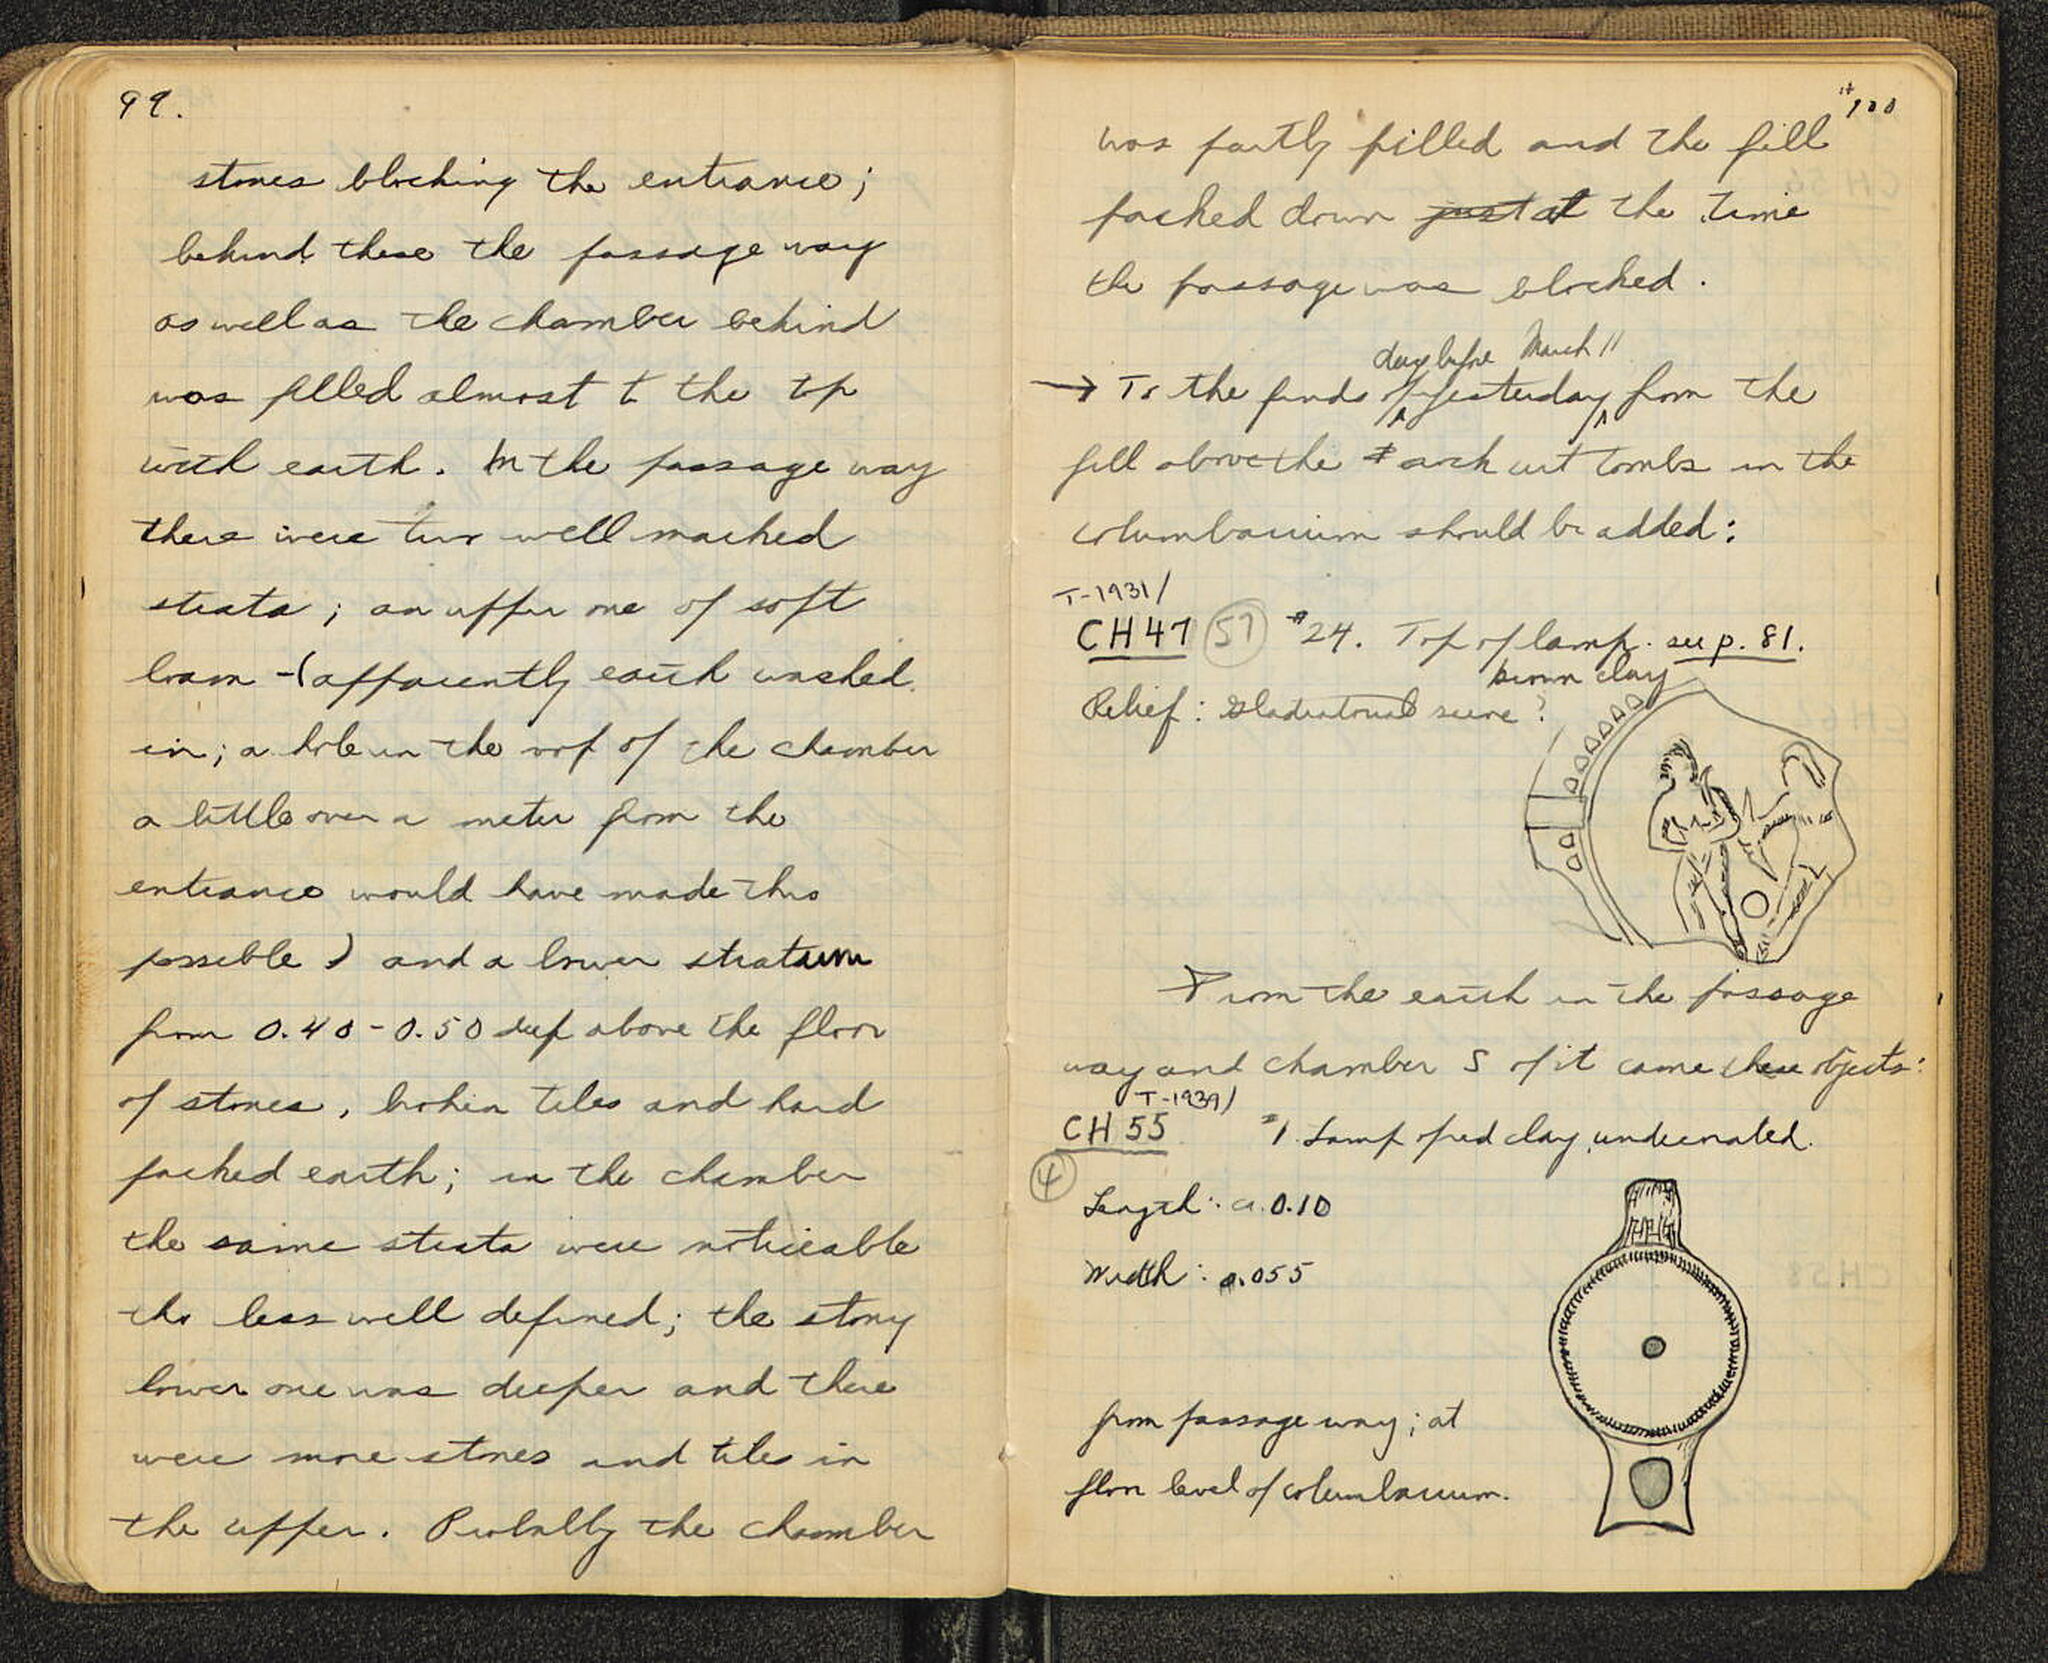 99.
stones blocking the entrance;
behind these the passage way
as well as the chamber behind
was filled almost to the top
with earth. In the passage way
there were two well marked
strata; an upper one of soft
loam -(apparently earth washed
in; a hole in the roof of the chamber
a little over a meter from the
entrance would have made this
possible) and a lower stratum
from 0.40 - 0.50 deep above the floor
of stones, broken tiles and hard
packed earth; in the chamber
the same strata were noticeable
tho less well defined; the stony
lower one was deeper and there
were more stones and tiles in
the upper. Probably the chamber
100
was partly filled and the fill
packed down just at the time
the passage was blocked.
day before March 11
→ To the finds of yesterday from the
fill above the # arch cut tombs in the
columbarium should be added:
T-1931/
CH 47 57 #24. Top of lamp. see p. 81.
brown clay
Relief: Gladiatorial scene?
From the earth in the passage
way and chamber S of it came these objects:
T-1939/
CH 55 #1. Lamp of red clay, undecorated.
4
Length: ca. 0.10
Width: 0.055
from passage way; at
floor level of columbarium.